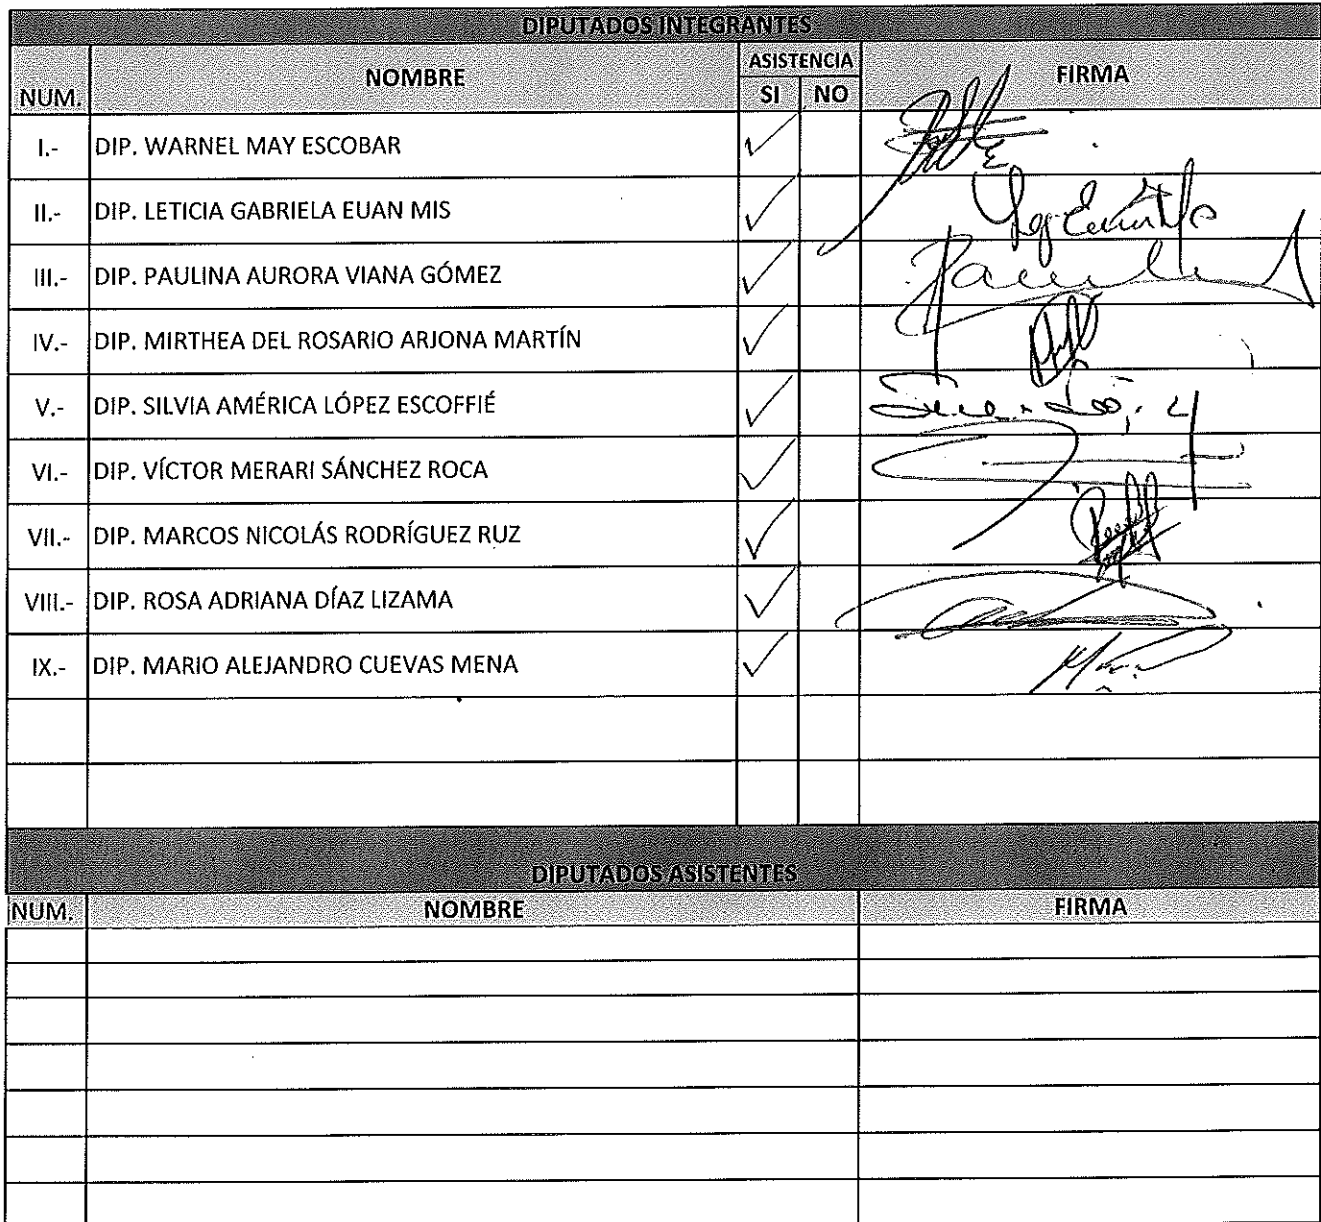 DIPUTADOS INTEGRANTES
NUM. NOMBRE ASISTENCIA FIRMA
SI NO
I.- DIP. WARNEL MAY ESCOBAR
II.- DIP. LETICIA GABRIELA EUAN MIS
III.- DIP. PAULINA AURORA VIANA GÓMEZ
IV.- DIP. MIRTHEA DEL ROSARIO ARJONA MARTÍN
V.- DIP. SILVIA AMÉRICA LÓPEZ ESCOFFIÉ
VI.- DIP. VÍCTOR MERARI SÁNCHEZ ROCA
VII.- DIP. MARCOS NICOLÁS RODRÍGUEZ RUZ
VIII.- DIP. ROSA ADRIANA DÍAZ LIZAMA
IX.- DIP. MARIO ALEJANDRO CUEVAS MENA
DIPUTADOS ASISTENTES
NUM. NOMBRE FIRMA